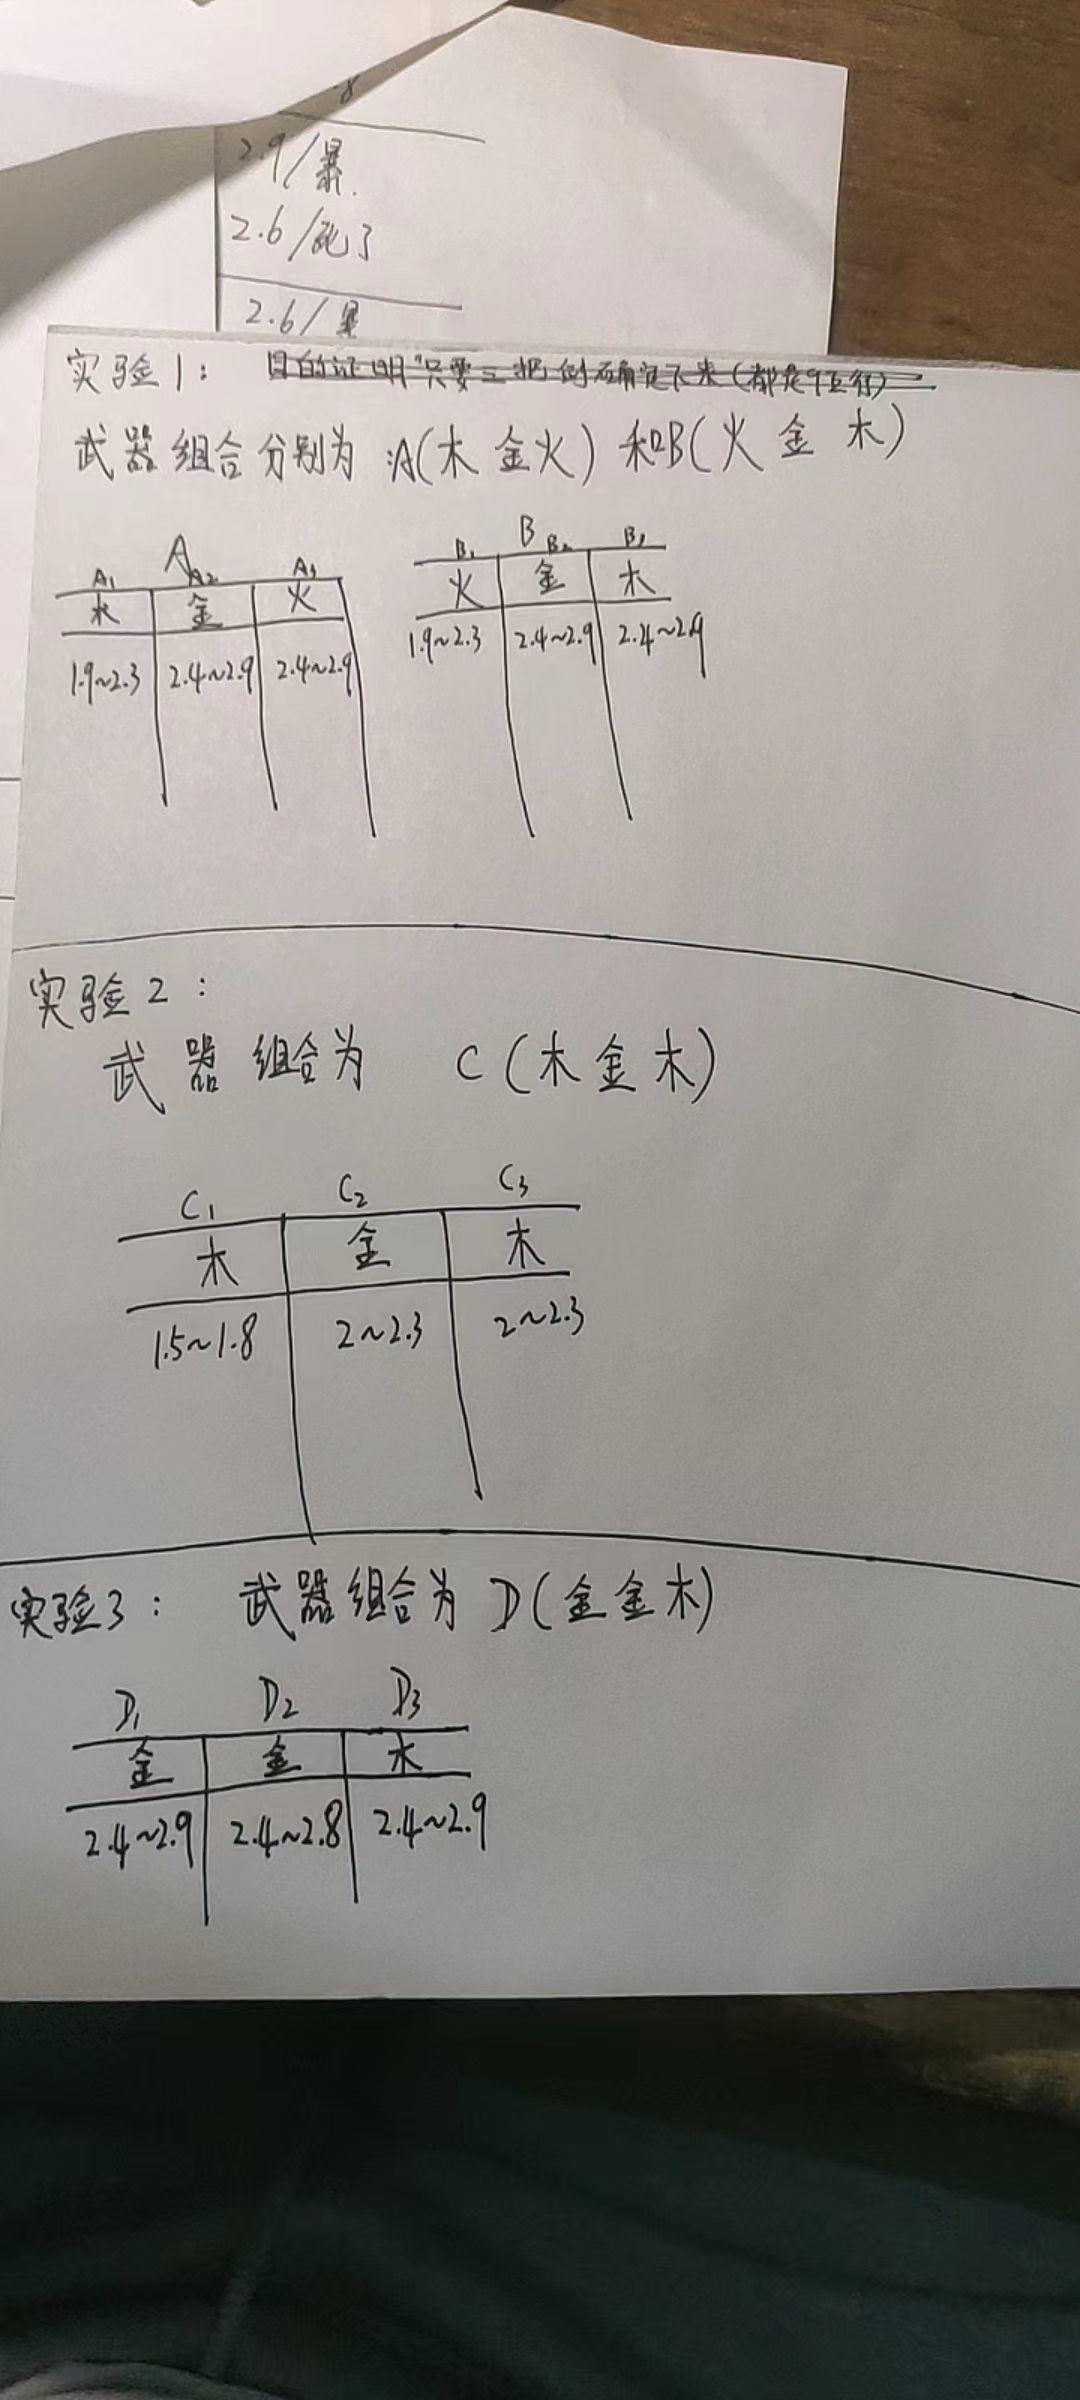 8
2.9/暴.
2.6/死了
2.6/暴
实验1： 目的证明"只要三把剑确定下来(都是9五行)
武器组合分别为:A(木 金 火) 和B(火 金 木)
A B
A1 A2 A3 B1 B2 B3
木 金 火 火 金 木
1.9~2.3 2.4~2.9 2.4~2.9 1.9~2.3 2.4~2.9 2.4~2.9
实验2：
武器组合为 C(木金木)
C1 C2 C3
木 金 木
1.5~1.8 2~2.3 2~2.3
实验3： 武器组合为 D(金金木)
D1 D2 D3
金 金 木
2.4~2.9 2.4~2.8 2.4~2.9